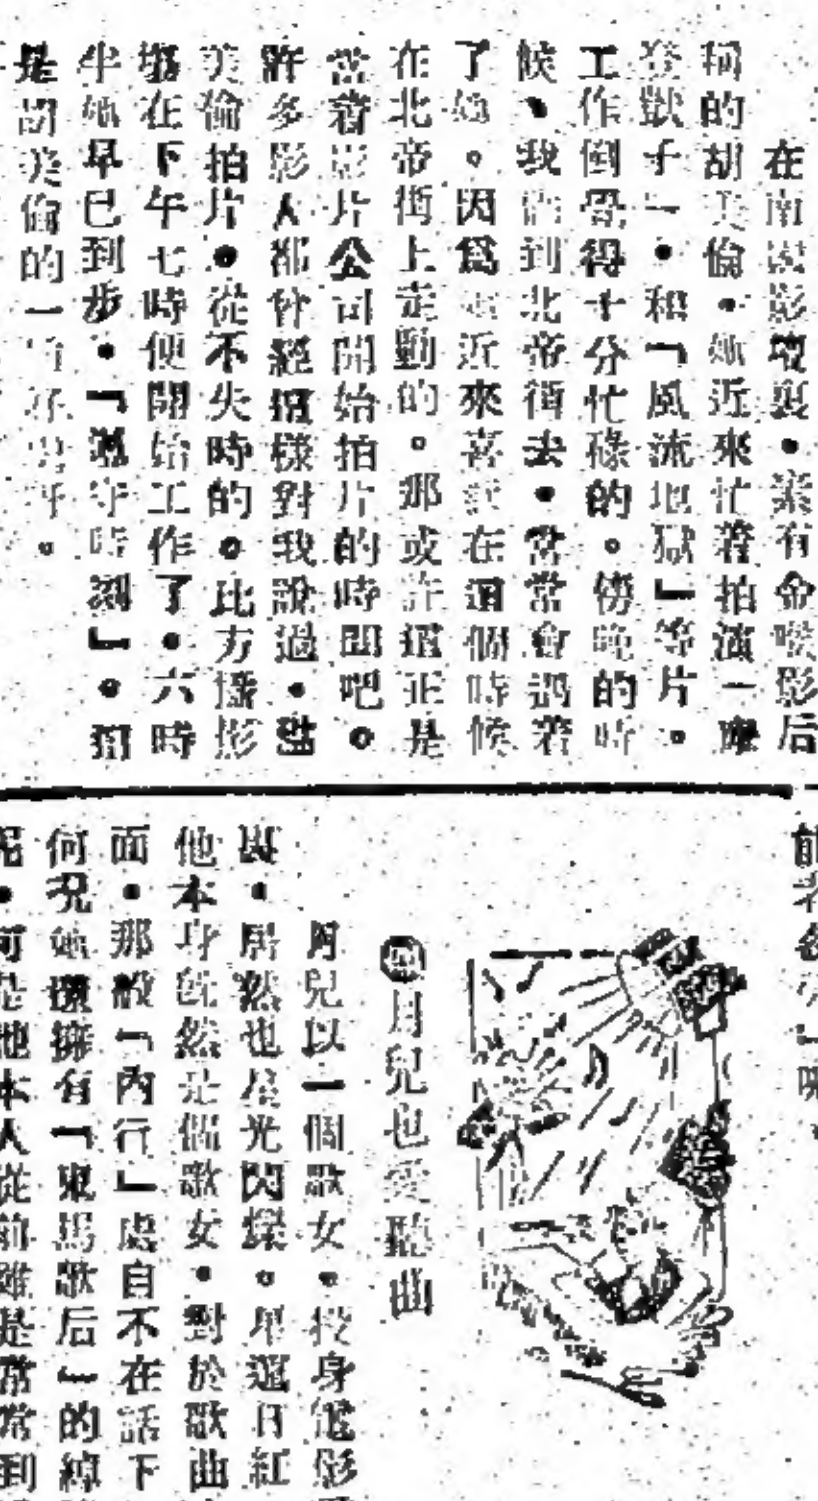 在南國影壇裏・素有金喉影后
稱的胡美倫・她近來忙着拍演「摩
登獃子」・和「風流地獄」等片。
工作倒覺得十分忙碌的。傍晚的時
候、我們到北帝街去・常常會遇着
了她。因爲她近來喜歡在這個時候
在北帝街上走動的。那或許這正是
當着影片公司開始拍片的時間吧。
許多影人都曾經這樣對我說過・當
美倫拍片・從不失時的。比方攝影
塲在下午七時便開始工作了・六時
半她早已到步・「遵守時刻」。這
是胡美倫的一個好習慣。
前者
月兒也愛聽曲
月兒以一個歌女・投身電影
界・居然也星光閃爍。單這日紅
他本身旣然是個歌女・對於歌曲
面・那般「內行」處自不在話下
何况她還擁有「東馬歌后」的綽
呢・可是他本人從前雖是常常到